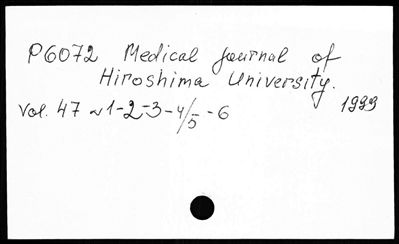 P6072 Medical Journal of
Hiroshima University.
Vol. 47 N 1-2-3-4/5-6 1999